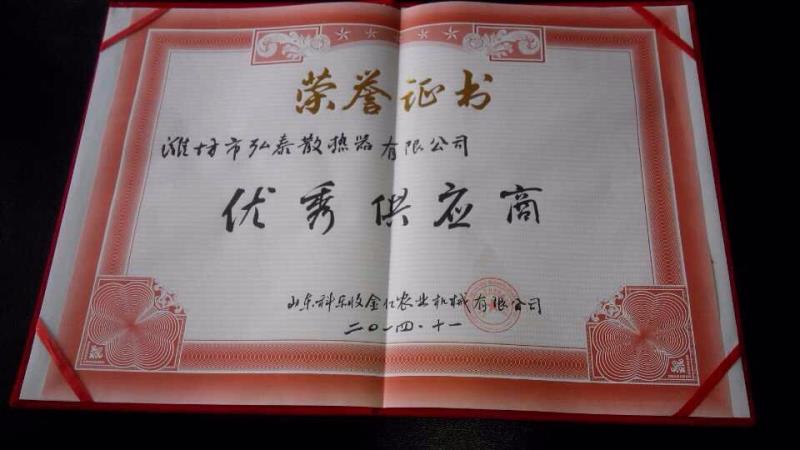 荣誉证书
潍坊市弘泰散热器有限公司
优秀供应商
山东科乐收金亿农业机械有限公司
二〇一四·十一